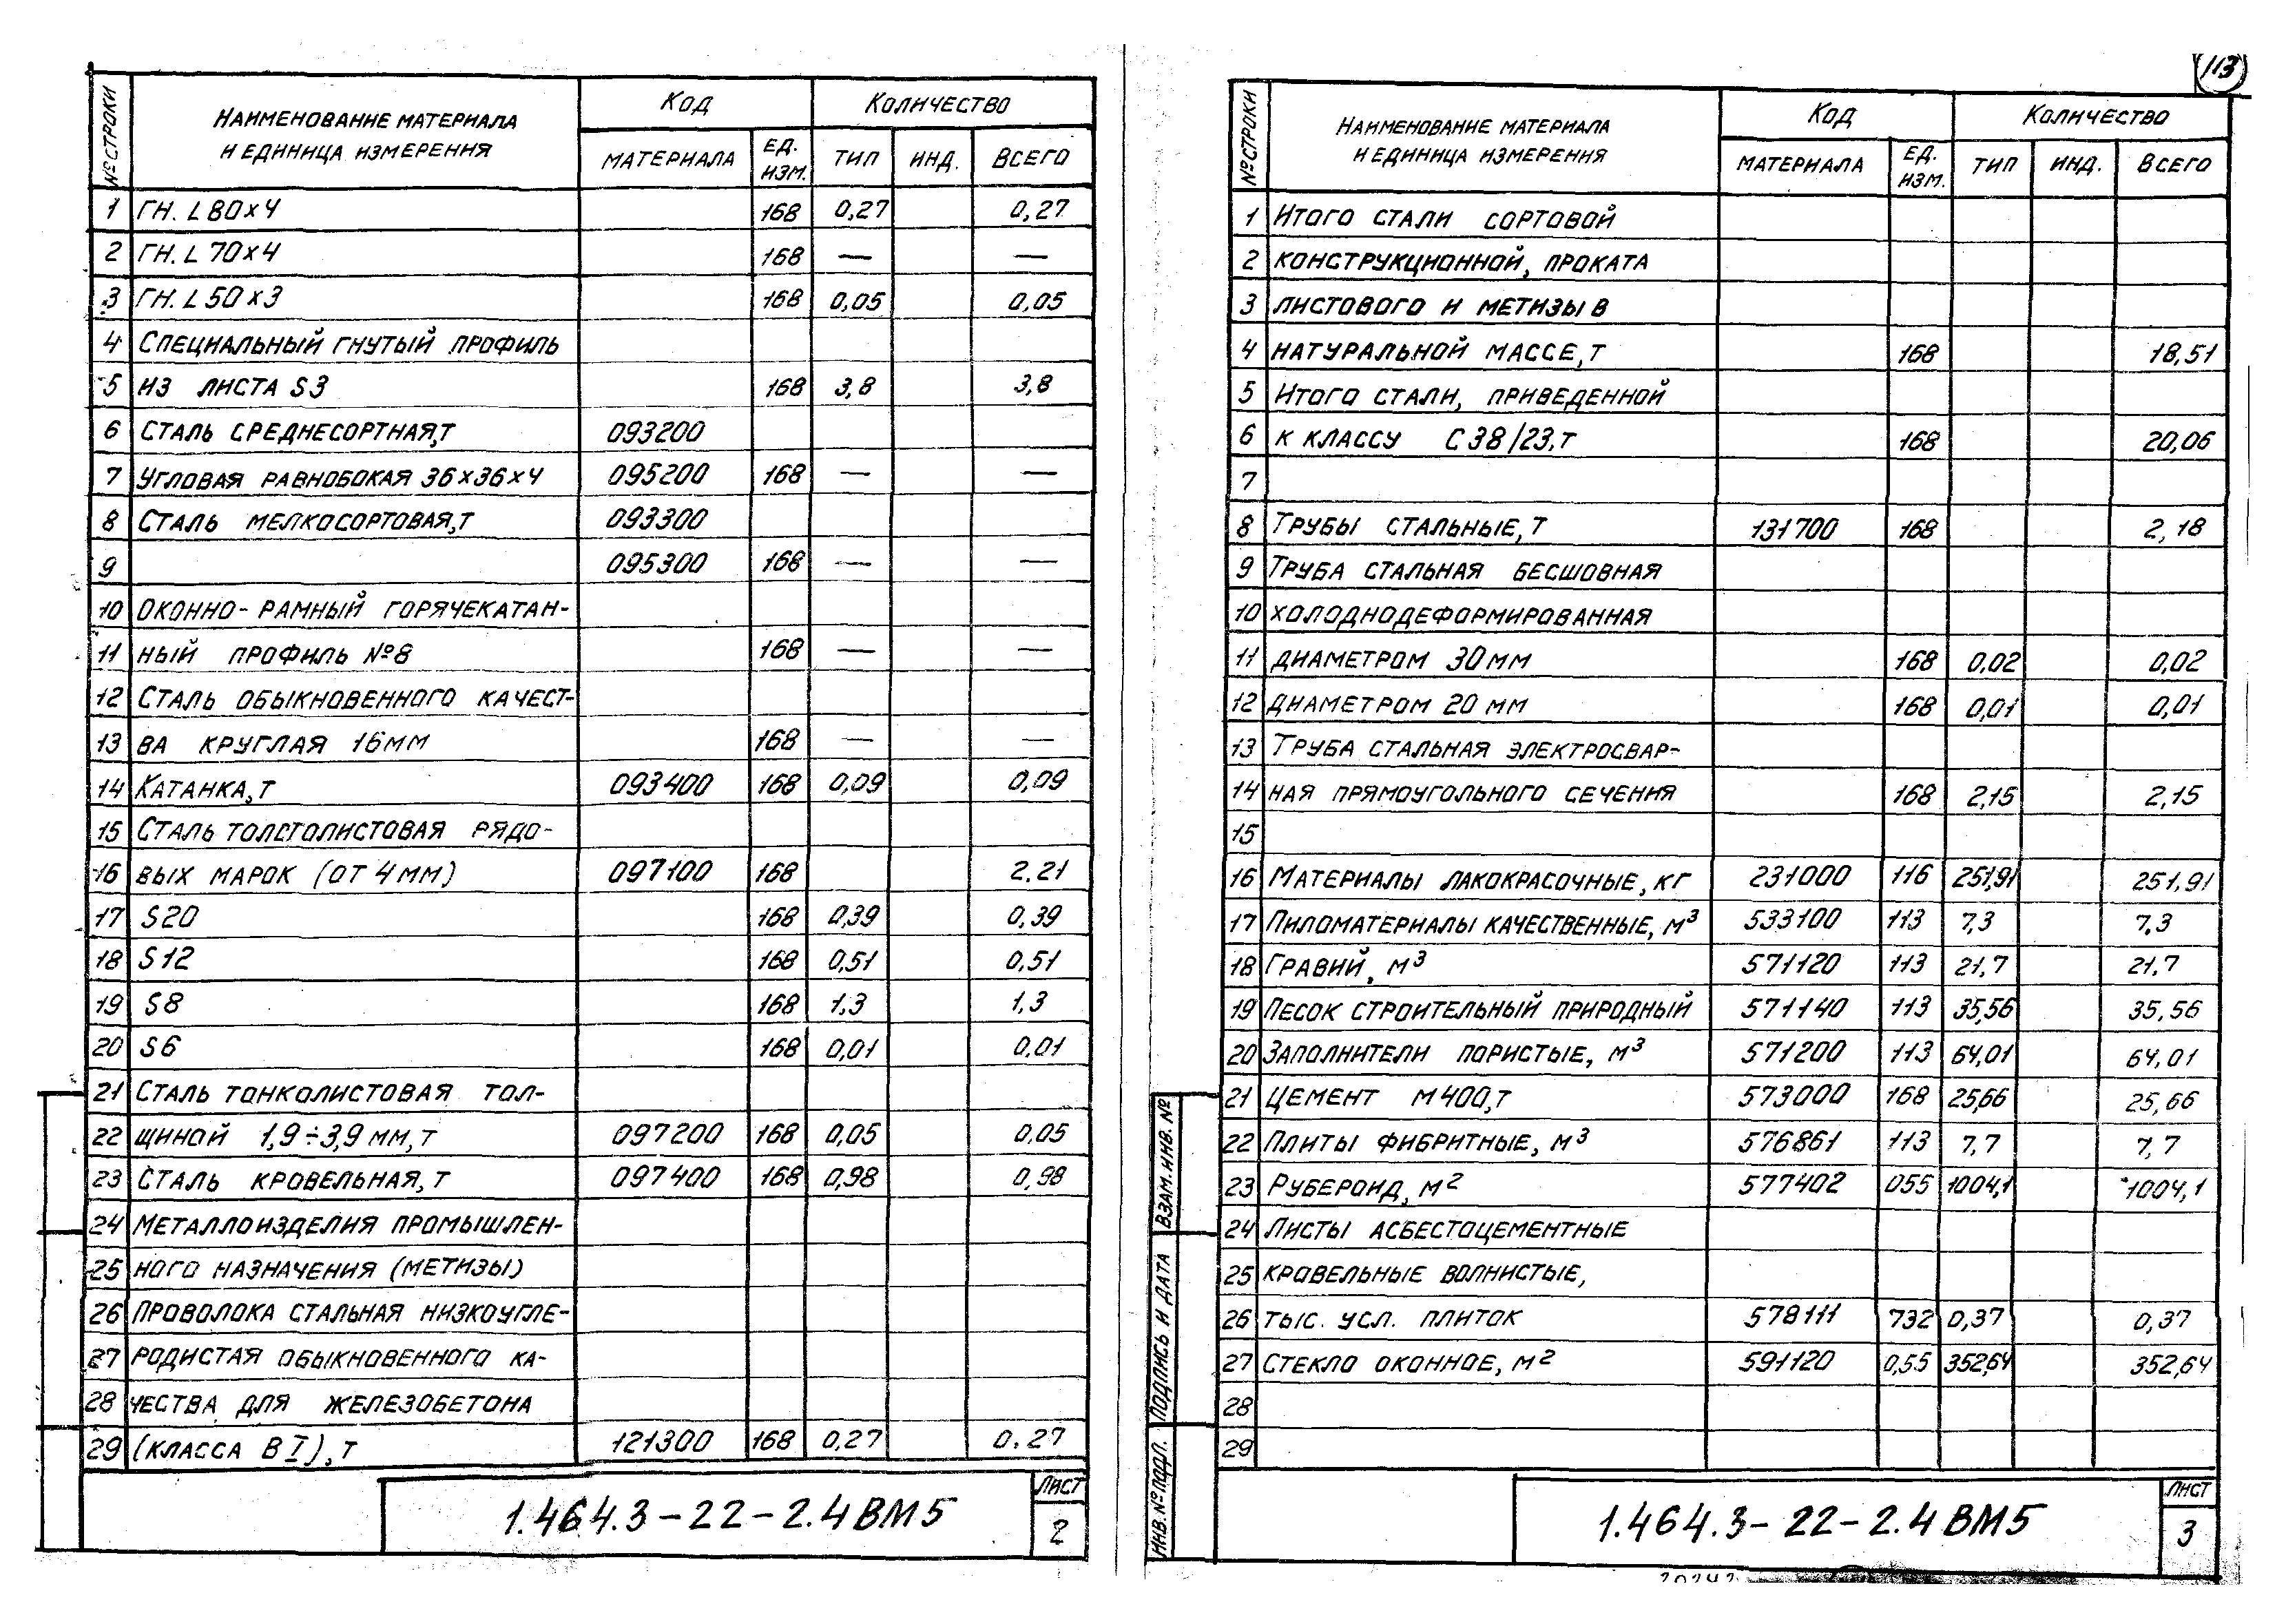 113
№ СТРОКИ
НАИМЕНОВАНИЕ МАТЕРИАЛА
И ЕДИНИЦА ИЗМЕРЕНИЯ
КОД
КОЛИЧЕСТВО
МАТЕРИАЛА
ЕД.
ИЗМ.
ТИП
ИНД.
ВСЕГО
1 ГН. L 80×4 168 0,27 0,27
2 ГН. L 70×4 168 — —
3 ГН. L 50×3 168 0,05 0,05
4 СПЕЦИАЛЬНЫЙ ГНУТЫЙ ПРОФИЛЬ
5 ИЗ ЛИСТА S3 168 3,8 3,8
6 СТАЛЬ СРЕДНЕСОРТНАЯ,Т 093200
7 УГЛОВАЯ РАВНОБОКАЯ 36×36×4 095200 168 — —
8 СТАЛЬ МЕЛКОСОРТОВАЯ,Т 093300
9 095300 168 — —
10 ОКОННО-РАМНЫЙ ГОРЯЧЕКАТАН-
11 НЫЙ ПРОФИЛЬ №8 168 — —
12 СТАЛЬ ОБЫКНОВЕННОГО КАЧЕСТ-
13 ВА КРУГЛАЯ 16ММ 168 — —
14 КАТАНКА,Т 093400 168 0,09 0,09
15 СТАЛЬ ТОЛСТОЛИСТОВАЯ РЯДО-
16 ВЫХ МАРОК (ОТ 4ММ) 097100 168 2.21
17 S20 168 0,39 0,39
18 S12 168 0,51 0,51
19 S8 168 1,3 1,3
20 S6 168 0,01 0,01
21 СТАЛЬ ТОНКОЛИСТОВАЯ ТОЛ-
22 ЩИНОЙ 1,9÷3,9 ММ, Т 097200 168 0,05 0,05
23 СТАЛЬ КРОВЕЛЬНАЯ, Т 097400 168 0,98 0,98
24 МЕТАЛЛОИЗДЕЛИЯ ПРОМЫШЛЕН-
25 НОГО НАЗНАЧЕНИЯ (МЕТИЗЫ)
26 ПРОВОЛОКА СТАЛЬНАЯ НИЗКОУГЛЕ-
27 РОДИСТАЯ ОБЫКНОВЕННОГО КА-
28 ЧЕСТВА ДЛЯ ЖЕЛЕЗОБЕТОНА
29 (КЛАССА В I), Т 121300 168 0,27 0.27
1.464.3-22-2.4 ВМ5
ЛИСТ
2
№ СТРОКИ
НАИМЕНОВАНИЕ МАТЕРИАЛА
И ЕДИНИЦА ИЗМЕРЕНИЯ
КОД
КОЛИЧЕСТВО
МАТЕРИАЛА
ЕД.
ИЗМ.
ТИП
ИНД.
ВСЕГО
1 ИТОГО СТАЛИ СОРТОВОЙ
2 КОНСТРУКЦИОННОЙ, ПРОКАТА
3 ЛИСТОВОГО И МЕТИЗЫ В
4 НАТУРАЛЬНОЙ МАССЕ, Т 168 18,51
5 ИТОГО СТАЛИ, ПРИВЕДЕННОЙ
6 К КЛАССУ С38/23, Т 168 20,06
7
8 ТРУБЫ СТАЛЬНЫЕ, Т 131700 168 2,18
9 ТРУБА СТАЛЬНАЯ БЕСШОВНАЯ
10 ХОЛОДНОДЕФОРМИРОВАННАЯ
11 ДИАМЕТРОМ 30ММ 168 0,02 0,02
12 ДИАМЕТРОМ 20 ММ 168 0,01 0,01
13 ТРУБА СТАЛЬНАЯ ЭЛЕКТРОСВАР-
14 НАЯ ПРЯМОУГОЛЬНОГО СЕЧЕНИЯ 168 2,15 2,15
15
16 МАТЕРИАЛЫ ЛАКОКРАСОЧНЫЕ, КГ 231000 116 251,91 251,91
17 ПИЛОМАТЕРИАЛЫ КАЧЕСТВЕННЫЕ, М³ 533100 113 7,3 7,3
18 ГРАВИЙ, М³ 571120 113 21,7 21,7
19 ПЕСОК СТРОИТЕЛЬНЫЙ ПРИРОДНЫЙ 571140 113 35,56 35,56
20 ЗАПОЛНИТЕЛИ ПОРИСТЫЕ, М³ 571200 113 64,01 64,01
21 ЦЕМЕНТ М400, Т 573000 168 25,66 25,66
22 ПЛИТЫ ФИБРИТНЫЕ, М³ 576861 113 7,7 7,7
23 РУБЕРОИД, М² 577402 055 1004,1 1004,1
24 ЛИСТЫ АСБЕСТОЦЕМЕНТНЫЕ
25 КРОВЕЛЬНЫЕ ВОЛНИСТЫЕ,
26 ТЫС. УСЛ. ПЛИТОК 578111 732 0,37 0,37
27 СТЕКЛО ОКОННОЕ, М² 591120 0,55 352,64 352,64
28
29
ВЗАМ. ИНВ. №
ПОДПИСЬ И ДАТА
ИНВ. № ПОДЛ.
1.464.3-22-2.4 ВМ5
ЛИСТ
3